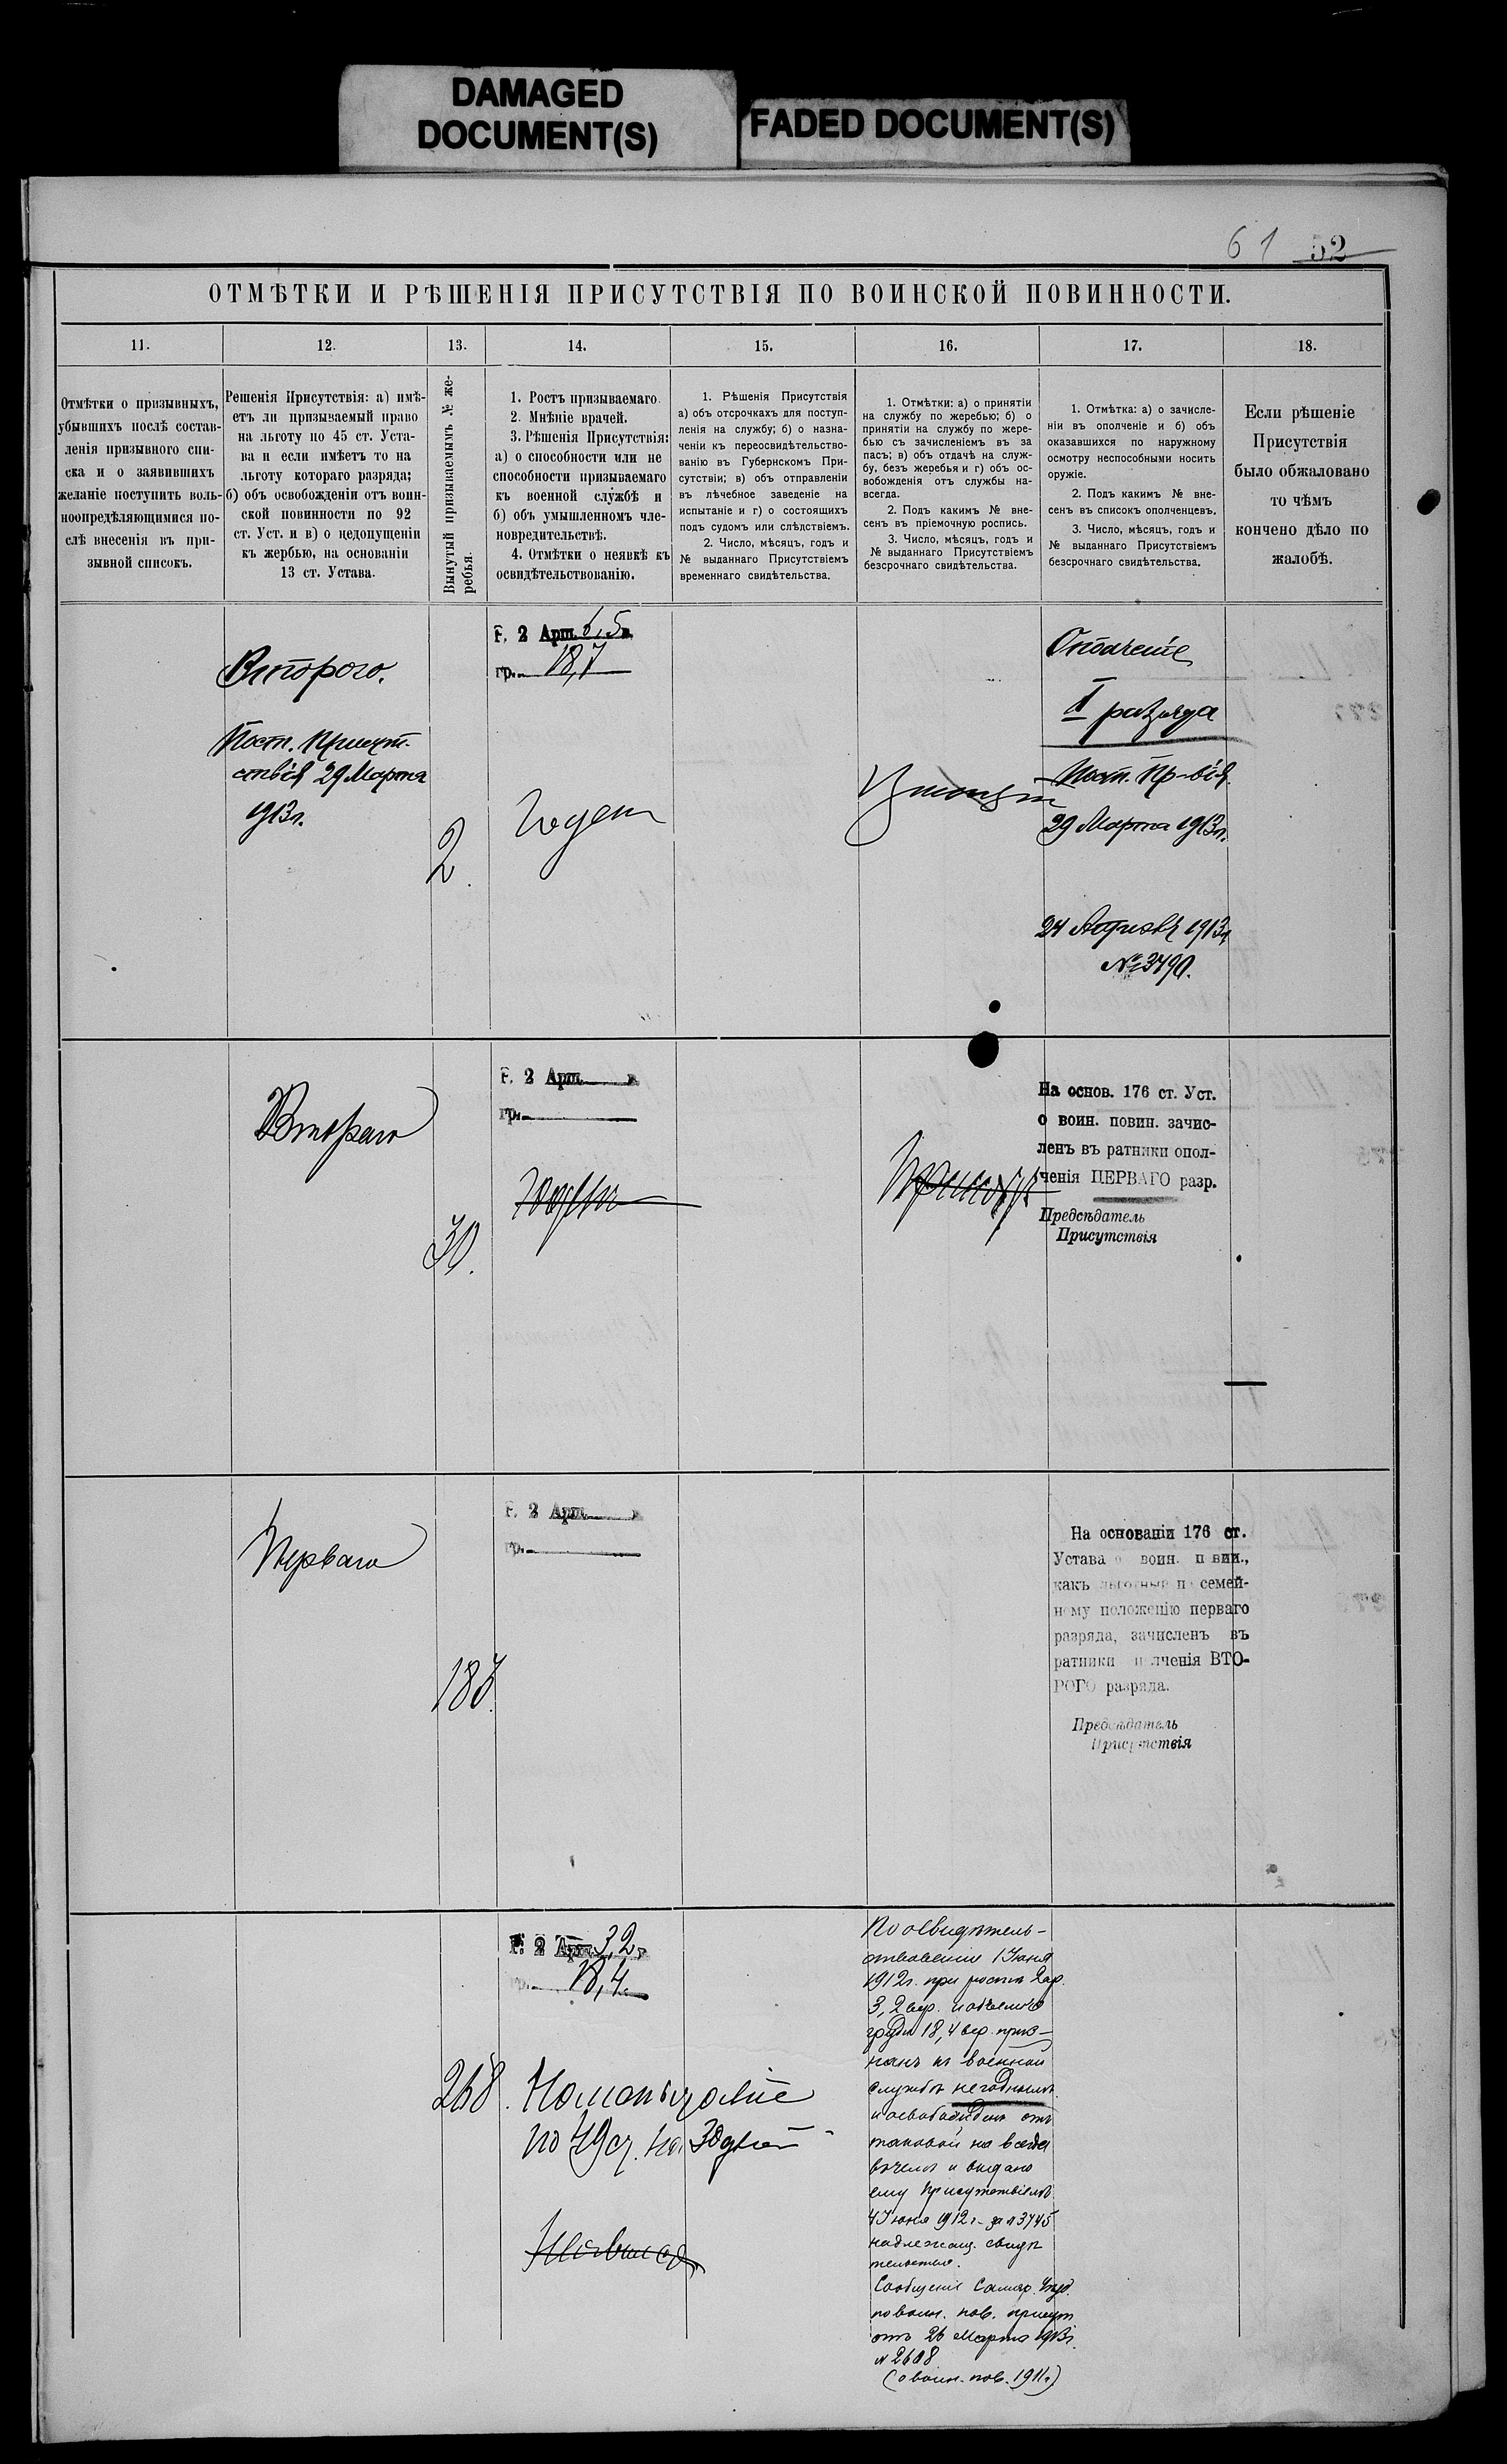 DAMAGED
DOCUMENT(S)
FADED DOCUMENT(S)
61 52
ОТМѢТКИ И РѢШЕНІЯ ПРИСУТСТВІЯ ПО ВОИНСКОЙ ПОВИННОСТИ.
11.
12.
13.
14.
15.
16.
17.
18.
Отмѣтки о призывныхъ,
убывшихъ послѣ состав-
ленія призывного спи-
ска и о заявившихъ
желаніе поступить воль-
ноопредѣляющимися по-
слѣ внесенія въ при-
зывной списокъ.
Решенія Присутствія: а) имѣ-
етъ ли призываемый право
на льготу по 45 ст. Уста-
ва и если имѣетъ то на
льготу котораго разряда;
б) объ освобожденіи отъ воин-
ской повинности по 92
ст. Уст. и в) о недопущеніи
къ жербью, на основаніи
13 ст. Устава.
Вынутый призываемымъ № же-
ребья.
1. Ростъ призываемаго.
2. Мнѣніе врачей.
3. Рѣшенія Присутствія:
а) о способности или не
способности призываемаго
къ военной службѣ и
б) объ умышленномъ чле-
новредительствѣ.
4. Отмѣтки о неявкѣ къ
освидѣтельствованію.
1. Рѣшенія Присутствія
а) объ отсрочкахъ для поступ-
ленія на службу; б) о назна-
ченіи къ переосвидѣтельство-
ванію въ Губернскомъ При-
сутствіи; в) объ отправленіи
въ лѣчебное заведеніе на
испытаніе и г) о состоящихъ
подъ судомъ или слѣдствіемъ.
2. Число, мѣсяцъ, годъ и
№ выданнаго Присутствіемъ
временнаго свидѣтельства.
1. Отмѣтки: а) о принятіи
на службу по жеребью; б) о
принятіи на службу по жере-
бью съ зачисленіемъ въ за
пасъ; в) объ отдачѣ на служ-
бу, безъ жеребья и г) объ ос-
вобожденія отъ службы на-
всегда.
2. Подъ какимъ № вне-
сенъ въ пріемочную роспись.
3. Число, мѣсяцъ, годъ и
№ выданнаго Присутствіемъ
безсрочнаго свидѣтельства.
1. Отмѣтка: а) о зачисле-
ніи въ ополченіе и б) объ
оказавшихся по наружному
осмотру неспособными носить
оружіе.
2. Подъ какимъ № вне-
сенъ въ списокъ ополченцевъ.
3. Число, мѣсяцъ, годъ и
№ выданнаго Присутствіемъ
безсрочнаго свидѣтельства.
Если рѣшеніе
Присутствія
было обжаловано
то чѣмъ
кончено дѣло по
жалобѣ.
Второго.
Пост. Присут-
ствія 29 Марта
1913г.
2.
Р. 2 Арш. 6,5 в.
гр. 18,7
Годен
Принят
Ополченіе
I разряда
Пост. Пр-вія
29 Марта 1913г.
24 Апреля 1913г.
№ 3790.
Второго
30.
Р. 2 Арш. в.
гр.
годен
Принят
На основ. 176 ст. Уст.
о воин. повин. зачис-
ленъ въ ратники опол-
ченія ПЕРВАГО разр.
Предсѣдатель
Присутствія
Перваго
187.
Р. 2 Арш. в.
гр.
На основаніи 176 ст.
Устава о воин. п вин.,
какъ льготный п семей-
ному положенію перваго
разряда, зачисленъ въ
ратники п лченія ВТО-
РОГО разряда.
Предсѣдатель
Присутствія
268.
Р. 2 Арш. 3,2 в
гр. 18,4
На испытаніе
по 49 ст. на 30 дней
Неявился
По освидѣтель-
ствованіи 1 Іюня
1912г. при ростѣ 2 ар.
3,2 вер. и объемѣ
груди 18,4 вер. приз-
нанъ къ военной
службѣ негоднымъ
и освобожденъ отъ
таковой на всегда
въ чемъ и выдано
ему Присутствіемъ
4 Іюня 1912г. за № 3745
надлежащ. свидѣ
тельство.
Сообщеніе Самар. Уѣзд.
по воин. пов. присут
отъ 26 Марта 1913г.
№ 2608
(о воин. пов. 1911г)